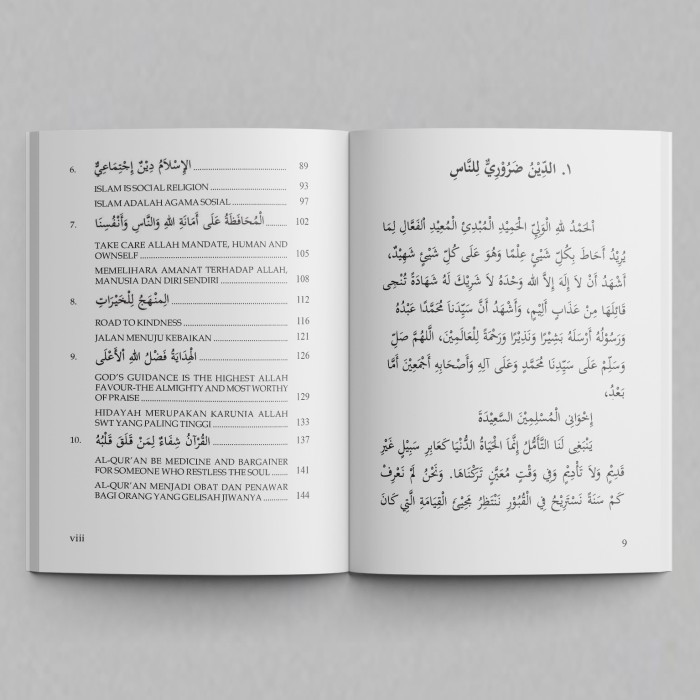 6. الإِسْلَامُ دِيْنٌ إِجْتِمَاعِيٌّ ........ 89
ISLAM IS SOCIAL RELIGION ........ 93
ISLAM ADALAH AGAMA SOSIAL ........ 97
7. الْمُحَافَظَةُ عَلَى أَمَانَةِ اللهِ وَالنَّاسِ وَأَنْفُسِنَا ........ 102
TAKE CARE ALLAH MANDATE, HUMAN AND
OWNSELF ........ 105
MEMELIHARA AMANAT TERHADAP ALLAH,
MANUSIA DAN DIRI SENDIRI ........ 108
8. الِمنْهَجُ لِلْخَيْرَاتِ ........ 112
ROAD TO KINDNESS ........ 116
JALAN MENUJU KEBAIKAN ........ 121
9. الْهِدَايَةُ فَضْلُ اللهِ الْأَعْلَى ........ 126
GOD'S GUIDANCE IS THE HIGHEST ALLAH
FAVOUR-THE ALMIGHTY AND MOST WORTHY
OF PRAISE ........ 129
HIDAYAH MERUPAKAN KARUNIA ALLAH
SWT YANG PALING TINGGI ........ 133
10. الْقُرْآنُ شِفَاءٌ لِمَنْ قَلَقَ قَلْبُهُ ........ 137
AL-QUR'AN BE MEDICINE AND BARGAINER
FOR SOMEONE WHO RESTLESS THE SOUL ........ 141
AL-QUR'AN MENJADI OBAT DAN PENAWAR
BAGI ORANG YANG GELISAH JIWANYA ........ 144
viii
١. الدِّيْنُ ضَرُوْرِيٌّ لِلنَّاسِ
اَلْحَمْدُ للهِ الْوَلِيِّ الْحَمِيْدِ الْمُبْدِئِ الْمُعِيْدِ اْلفَعَّالِ لِمَا
يُرِيْدُ أَحَاطَ بِكُلِّ شَيْئٍ عِلْمًا وَهُوَ عَلَى كُلِّ شَيْئٍ شَهِيْدٌ،
أَشْهَدُ أَنْ لَا إِلَهَ إِلاَّ الله وَحْدَهُ لَا شَرِيْكَ لَهُ شَهَادَةً تُنْجِى
قَائِلَهَا مِنْ عَذَابٍ أَلِيْمٍ، وَأَشْهَدُ أَنَّ سَيِّدَنَا مُحَمَّدًا عَبْدُهُ
وَرَسُوْلُهُ أَرْسَلَهُ بَشِيْرًا وَنَذِيْرًا وَرَحْمَةً لِلْعَالَمِيْنَ، اَللَّهُمَّ صَلِّ
وَسَلِّمْ عَلَى سَيِّدِنَا مُحَمَّدٍ وَعَلَى آلِهِ وَأَصْحَابِهِ أَجْمَعِيْنَ أَمَّا
بَعْدُ،
إِخْوَانِي الْمُسْلِمِيْنَ السَّعِيْدَةَ
يَنْبَغِى لَنَا التَّأَمُّلُ إِنَّمَا الْحَيَاةُ الدُّنْيَا كَعَابِرِ سَبِيْلٍ غَيْرِ
قَدِيْمٍ وَلَا تَأْدِيْمٍ وَفِي وَقْتٍ مُعَيَّنٍ تَرَكْنَاهَا. وَنَحْنُ لَمْ نَعْرِفْ
كَمْ سَنَةً نَسْتَرِيْحُ فِي الْقُبُوْرِ نَنْتَظِرُ مَجِيْئَ الْقِيَامَةِ الَّتِي كَانَ
9